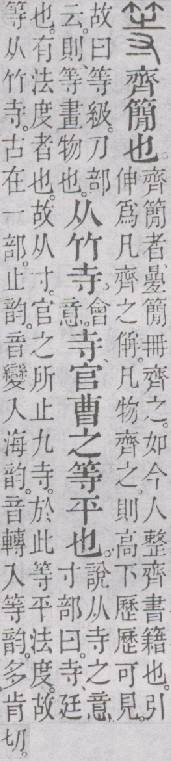 等齊簡也。齊簡者曡簡冊齊之。如今人整齊書籍也。引
伸爲凡齊之偁。凡物齊之。則高下歷歷可見。
故曰等級。刀部
云。則、等畫物也。从竹寺。會意。寺、官曹之等平也。說从寺之意。
寸部曰。寺、廷
也。有法度者也。故从寸。官之所止九寺。於此等平法度。故
等从竹寺。古在一部止韵。音變入海韵。音轉入等韵。多肯切。